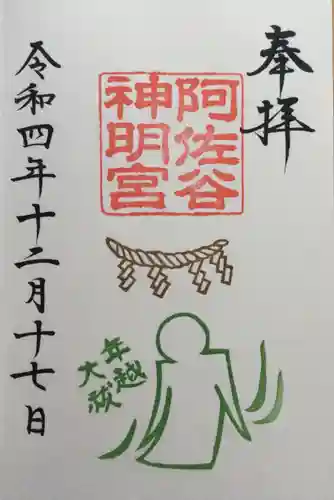 奉拝
阿佐谷
神明宮
年越
大祓
令和四年十二月十七日